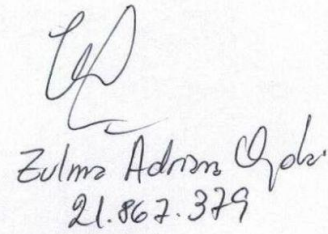 Zulma Adriana
21.867.379